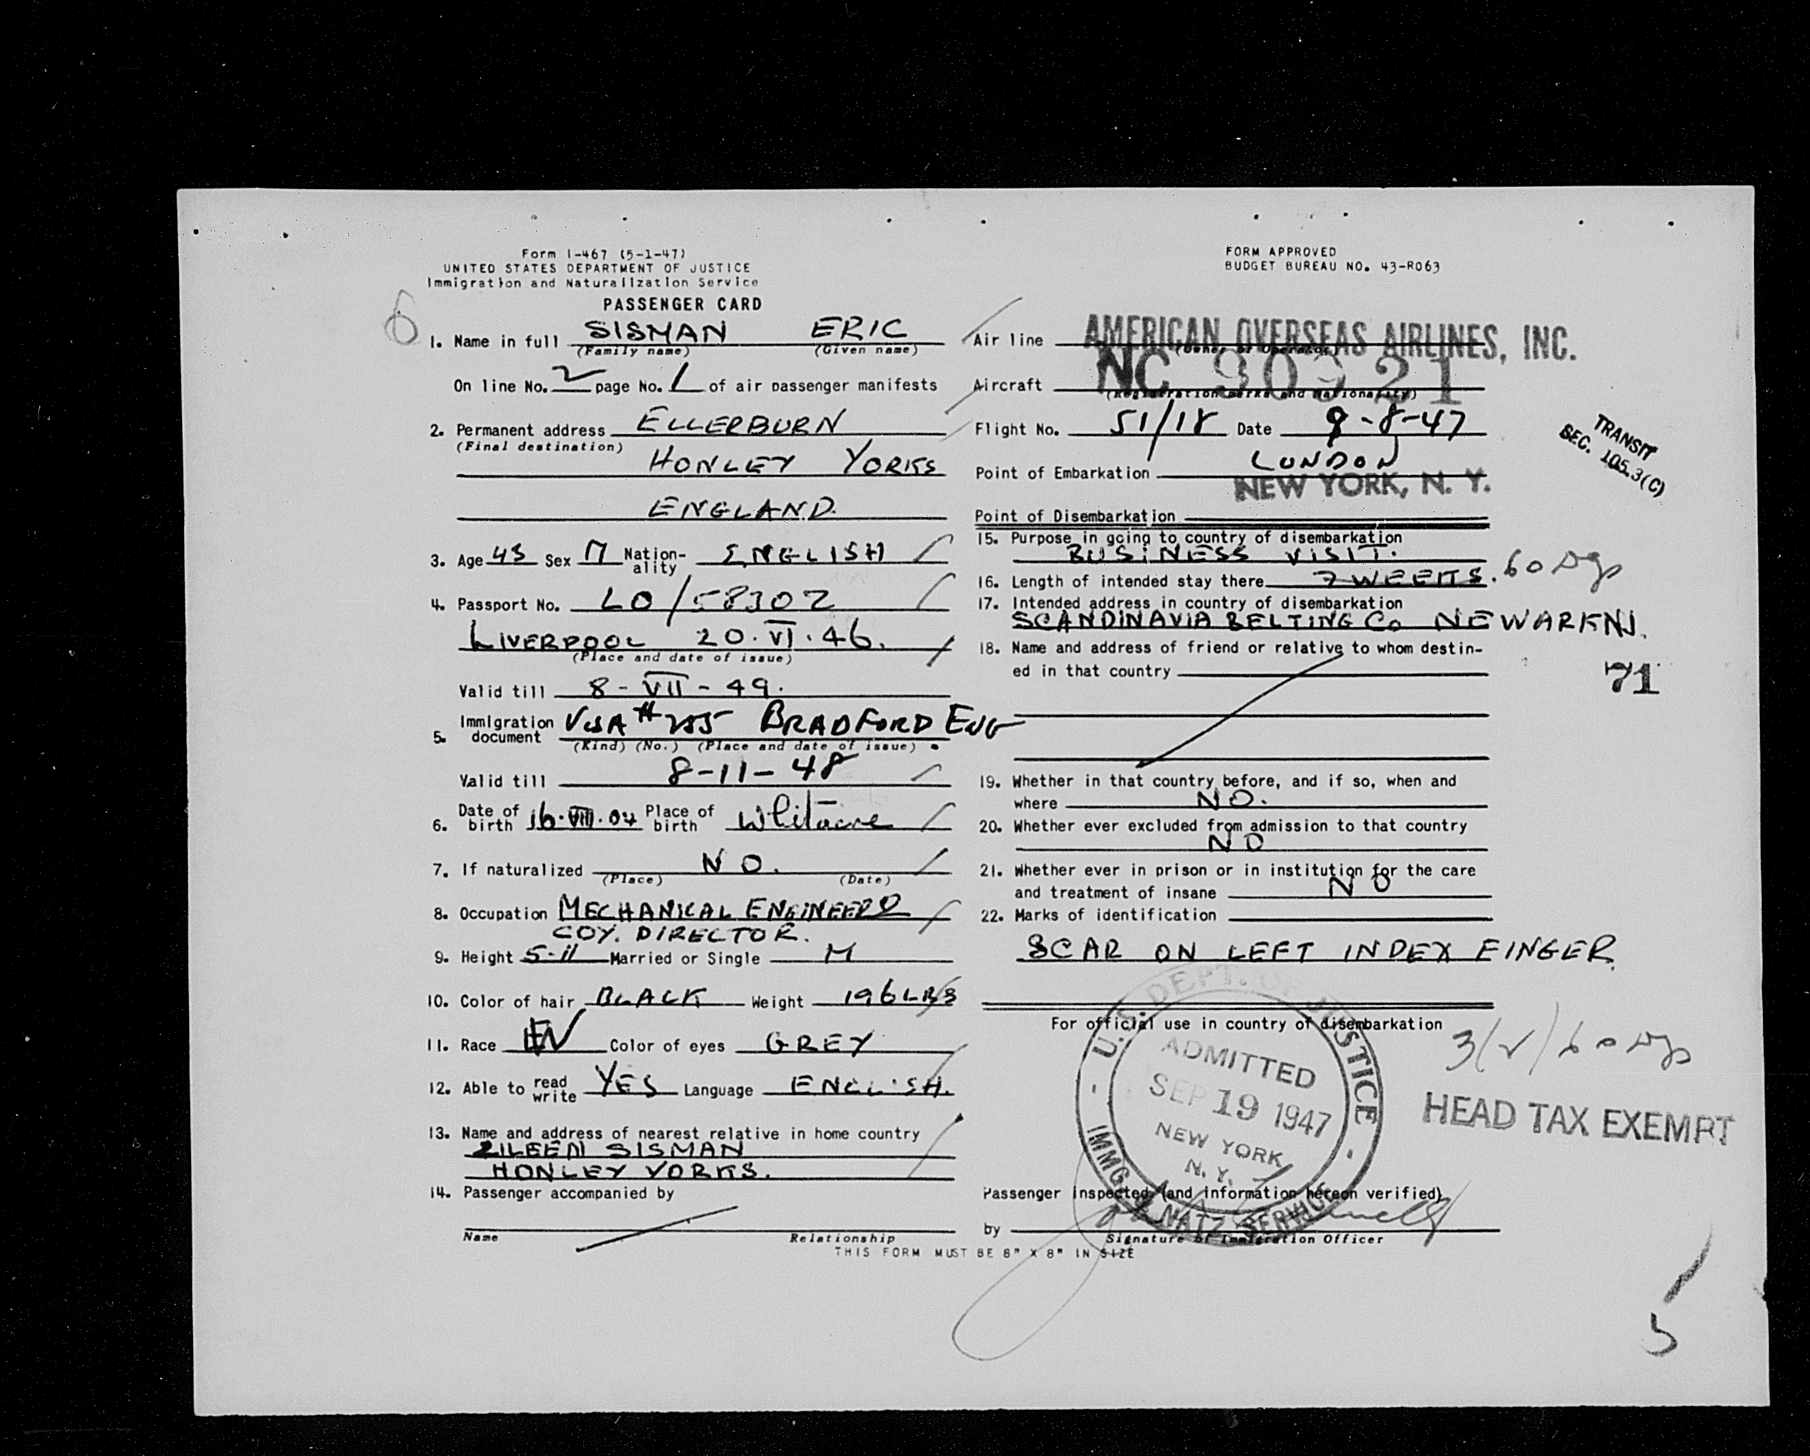 Form I-467 (5-1-47)
UNITED STATES DEPARTMENT OF JUSTICE
Immigration and Naturalization Service
PASSENGER CARD
FORM APPROVED
BUDGET BUREAU NO. 43-R063
6
1. Name in full SISMAN ERIC
(Family name) (Given name)
On line No. 2 page No. 1 of air passenger manifests
2. Permanent address ELLERBURN
(Final destination)
HONLEY YORKS
ENGLAND.
3. Age 43 Sex M Nationality ENGLISH
4. Passport No. LO/58302
LIVERPOOL 20.VI.46.
(Place and date of issue)
Valid till 8-VII-49.
5. Immigration document VISA # 255 BRADFORD ENG
(Kind) (No.) (Place and date of issue)
Valid till 8-11-48
6. Date of birth 16.VIII.04 Place of birth
7. If naturalized NO.
(Place) (Date)
8. Occupation MECHANICAL ENGINEER &
COY. DIRECTOR.
9. Height 5-11 Married or Single M
10. Color of hair BLACK Weight 196 LBS
11. Race Color of eyes GREY
12. Able to read write YES Language ENGLISH.
13. Name and address of nearest relative in home country
EILEEN SISMAN
HONLEY YORKS.
14. Passenger accompanied by
Name Relationship
THIS FORM MUST BE 8" X 8" IN SIZE
Air line AMERICAN OVERSEAS AIRLINES, INC.
(Owner or Operator)
Aircraft NC 90921
(Registration marks and Nationality)
Flight No. 51/18 Date 9-8-47
Point of Embarkation LONDON
NEW YORK, N. Y.
Point of Disembarkation
TRANSIT
SEC. 105.3(C)
15. Purpose in going to country of disembarkation
BUSINESS VISIT.
16. Length of intended stay there 7 WEEKS. 60 Dys
17. Intended address in country of disembarkation
SCANDINAVIA BELTING Co NEWARK NJ.
18. Name and address of friend or relative to whom destin-
ed in that country
71
19. Whether in that country before, and if so, when and
where NO.
20. Whether ever excluded from admission to that country
NO
21. Whether ever in prison or in institution for the care
and treatment of insane NO
22. Marks of identification
SCAR ON LEFT INDEX FINGER.
For official use in country of disembarkation
3(v)/60 Dys
HEAD TAX EXEMPT
U.S. DEPT. OF JUSTICE
ADMITTED
SEP 19 1947
NEW YORK
N. Y.
IMMG. & NATZ. SERVICE
Passenger inspected (and information hereon verified)
by
Signature of Immigration Officer
5